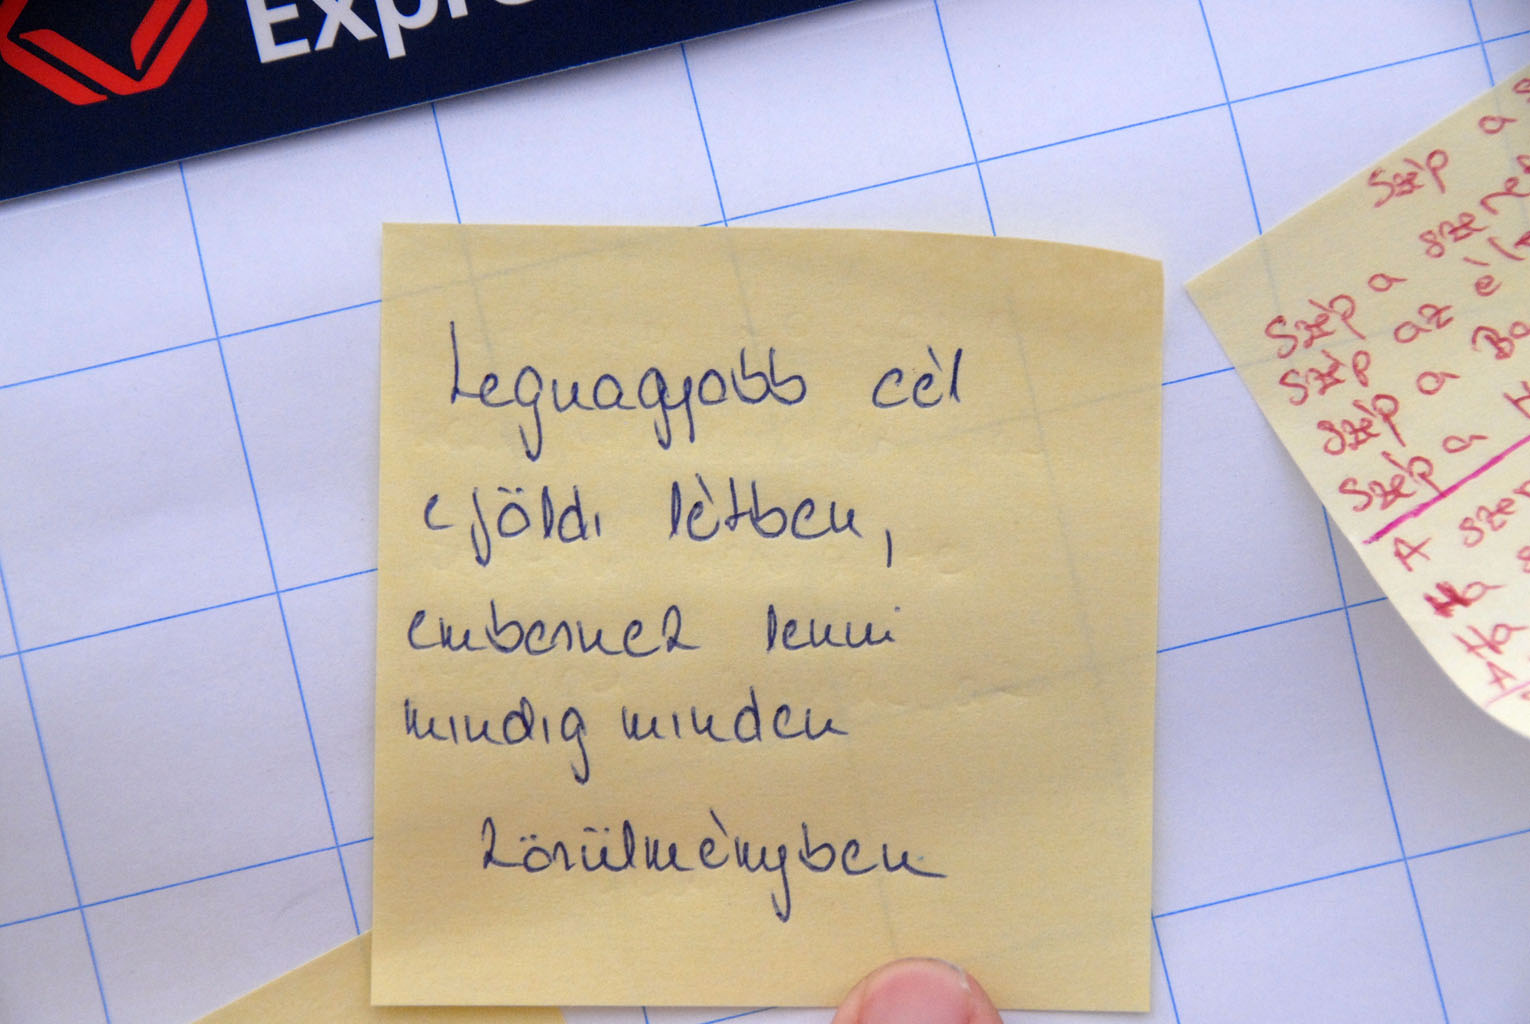 Expre
Legnagyobb cél
e földi létben,
embernek lenni
mindig minden
körülményben
Szép a
Szép a szere
Szép az él
Szép a Ba
Szép a
A szer
Ha
Ha
A